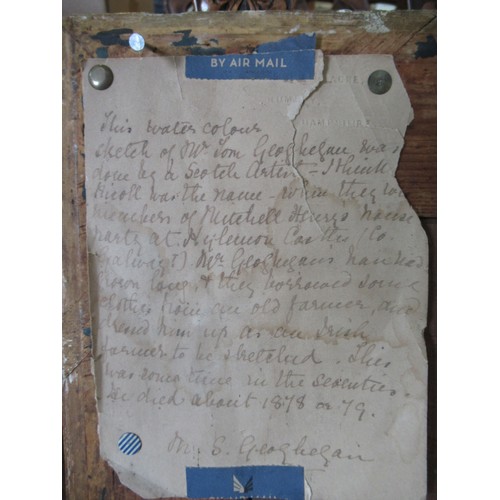 BY AIR MAIL
This water colour
sketch of Mr. Tom Geoghegan was
done by a Scotch Artist - I think
Nicoll was the name - when they were
members of Mitchell Henry's house
party at Kylemore Castle (Co.
Galway) Mr. Geoghegan's hair had
grown long & they borrowed some
clothes from an old farmer, and
him up as an Irish
farmer to be sketched. This
was some time in the seventies.
He died about 1878 or 79.
S. Geoghegan
BY AIR MAIL